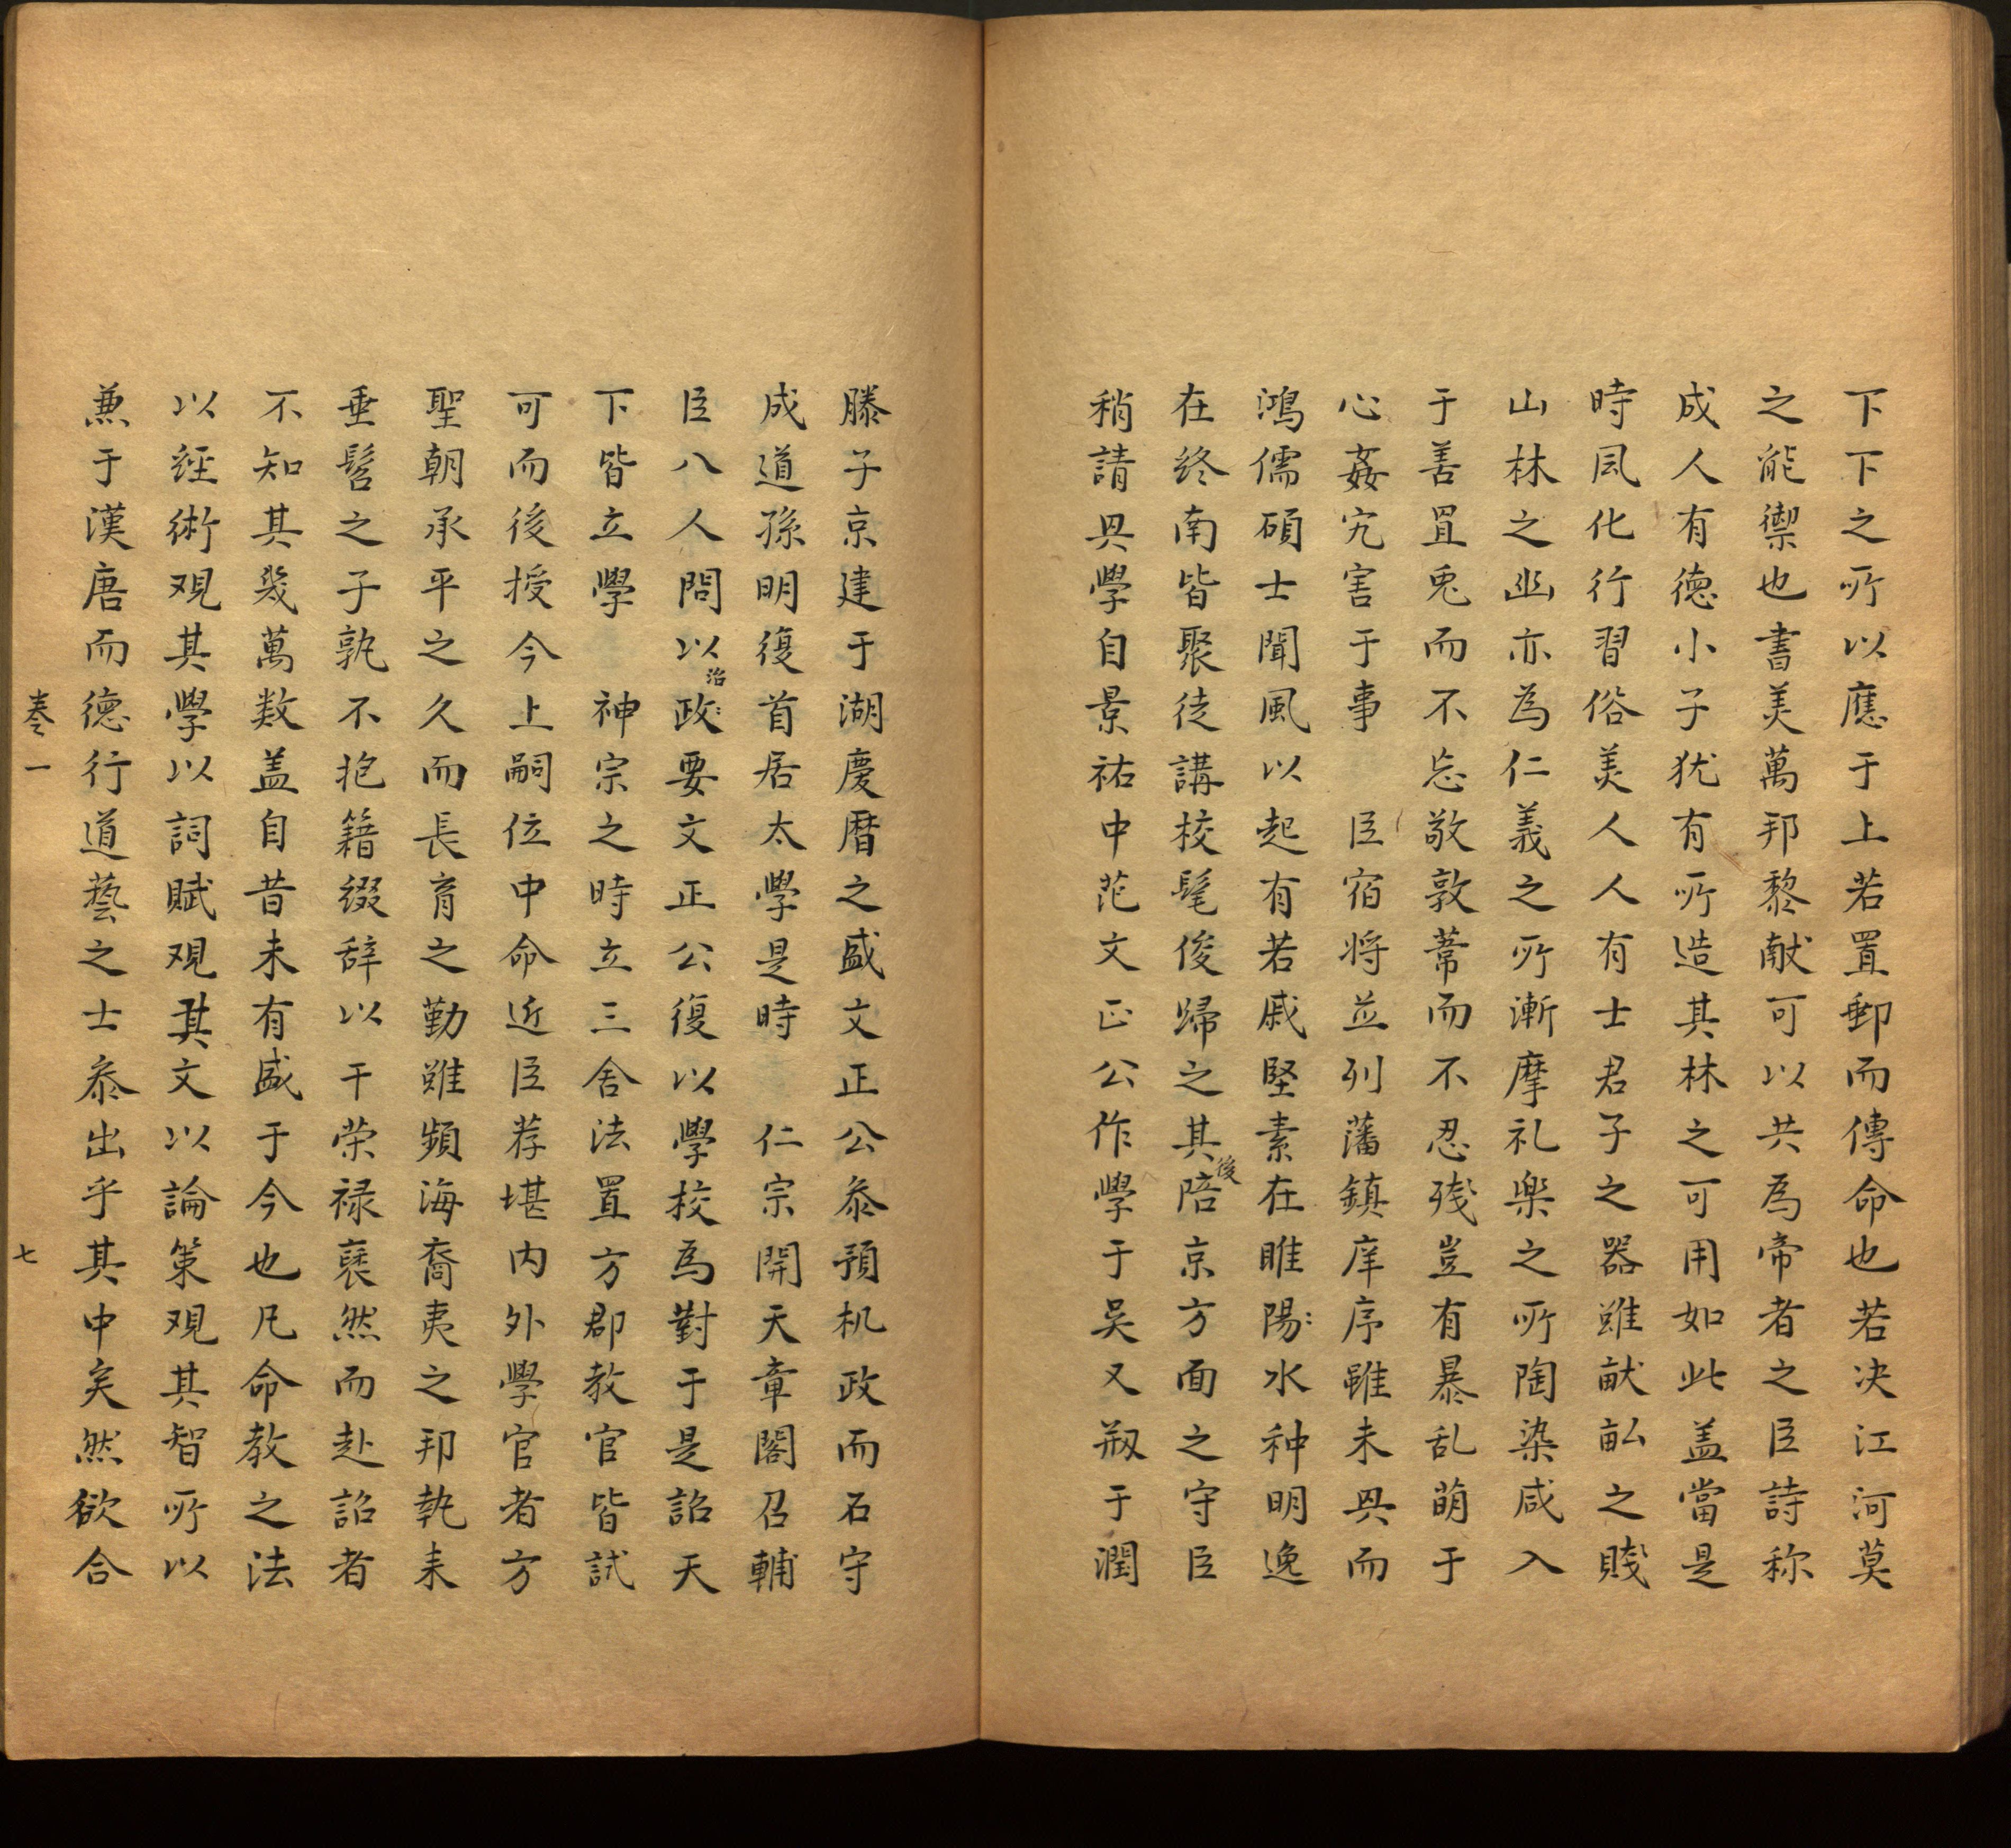 下下之所以應于上若置郵而傳命也若决江河莫
之能禦也書美萬邦黎献可以共為帝者之臣詩称
成人有德小子犹有所造其林之可用如此盖當是
時風化行習俗美人人有士君子之器雖畎畆之賤
山林之幽亦為仁義之所漸摩礼樂之所陶染咸入
于善罝兎而不忘敬敦葦而不忍殘豈有暴乱萌于
心姦宄害于事　臣宿将並列藩鎮庠序雖未興而
鴻儒碩士聞風以起有若戚堅素在睢陽:水种明逸
在终南皆聚徒講校髦俊歸之其後陪京方面之守臣
稍請興學自景祐中范文正公作學于吴又剏于潤
滕子京建于湖慶曆之盛文正公叅預机政而石守
成道孫明復首居太學是時　仁宗開天章閣召輔
臣八人問以治政:要文正公復以學校為對于是詔天
下皆立學　神宗之時立三舍法置方郡教官皆試
可而後授今上嗣位中命近臣荐堪内外學官者方
聖朝承平之久而長育之勤雖瀕海裔夷之邦執耒
垂髫之子孰不抱籍綴辞以干荣禄褎然而赴詔者
不知其幾萬数盖自昔未有盛于今也凡命教之法
以経術观其學以詞賦观其文以論策观其智所以
兼于漢唐而德行道藝之士叅出乎其中矣然欲合
卷一　七